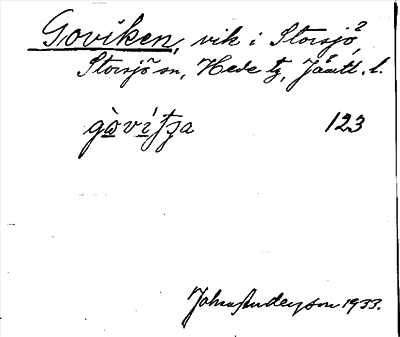 Goviken, vik i Storsjö,
Storsjö sn, Hede tg, Jämtl. l.
123
John Anderson 1933.